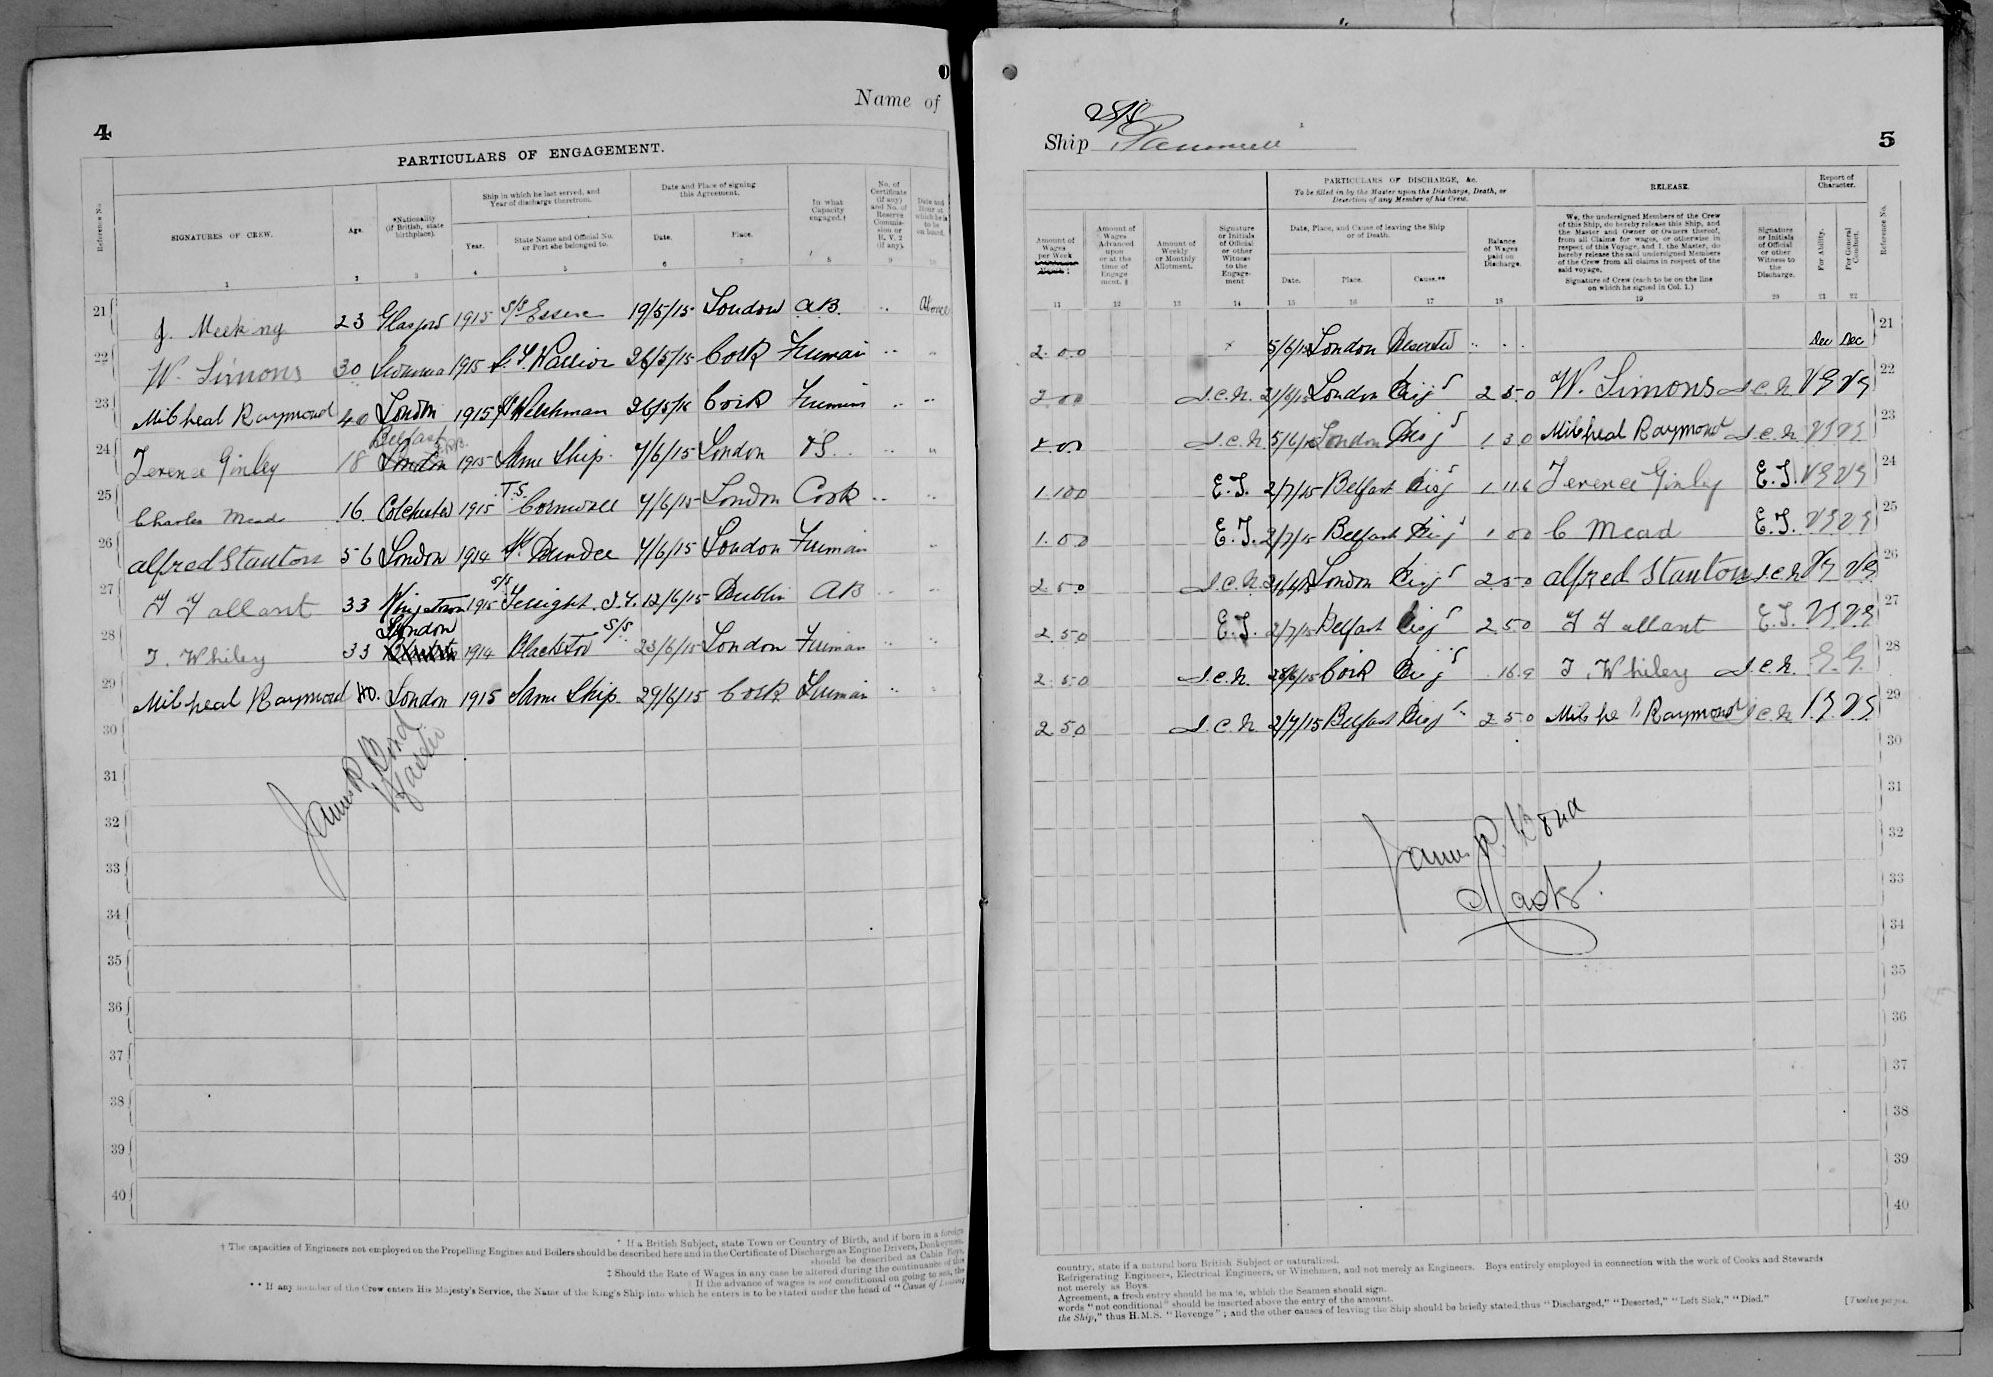 Name of
4
PARTICULARS OF ENGAGEMENT.
Reference No.
SIGNATURES OF CREW.
Age.
*Nationality (If British, state birthplace).
Ship in which he last served, and Year of discharge therefrom.
Year.
State Name and Official No. or Port she belonged to.
Date and Place of signing this Agreement.
Date.
Place.
In what Capacity engaged.†
No. of Certificate (if any) and No. of Reserve Commission or R. V. 2 (if any).
Date and Hour at which he is to be on board.
1 2 3 4 5 6 7 8 9 10
21 J. Meeking 23 Glasgow 1915 S/S Essex 19/5/15 London A.B. " At once
22 W. Simons 30 Swansea 1915 Warrior 26/5/15 Cork Fireman " "
23 Micheal Raymond 40 London 1915 Welshman 26/5/15 Cork Fireman " "
24 Terence Ginley 18 Belfast London 1915 Same Ship. 4/6/15 London O.S. " "
25 Charles Mead 16 Colchester 1915 T.S. Cornwall 4/6/15 London Cook " "
26 alfred Stanton 56 London 1914 Dundee 4/6/15 London Fireman "
27 33 Kingstown 1915 S/S 12/6/15 Dublin AB " "
28 T. Whiley 33 London 1914 S/S 23/6/15 London Fireman " "
29 Micheal Raymond 40. London 1915 Same Ship. 29/6/15 Cork Fireman " "
30
31
32
33
34
35
36
37
38
39
40
James R. Bond
Master
* If a British Subject, state Town or Country of Birth, and if born in a foreign
† The capacities of Engineers not employed on the Propelling Engines and Boilers should be described here and in the Certificate of Discharge as Engine Drivers, Donkeymen,
should be described as Cabin Boys,
‡ Should the Rate of Wages in any case be altered during the continuance of this
If the advance of wages is not conditional on going to sea, the
** If any member of the Crew enters His Majesty's Service, the Name of the King's Ship into which he enters is to be stated under the head of "Cause of Leaving
S/S
Ship
5
Amount of Wages per Week
Amount of Wages Advanced upon or at the time of Engagement. §
Amount of Weekly or Monthly Allotment.
Signature or Initials of Official or other Witness to the Engagement
PARTICULARS OF DISCHARGE, &c.
To be filled in by the Master upon the Discharge, Death, or Desertion of any Member of his Crew.
Date, Place, and Cause of leaving the Ship or of Death.
Date.
Place.
Cause.**
Balance of Wages paid on Discharge.
RELEASE.
We, the undersigned Members of the Crew of this Ship, do hereby release this Ship, and the Master and Owner or Owners thereof, from all Claims for wages, or otherwise in respect of this Voyage, and I, the Master, do hereby release the said undersigned Members of the Crew from all claims in respect of the said voyage.
Signature of Crew (each to be on the line on which he signed in Col. 1.)
Signature or Initials of Official or other Witness to the Discharge.
Report of Character.
For Ability.
For General Conduct.
Reference No.
11 12 13 14 15 16 17 18 19 20 21 22
2.0.0 × 5/6/15 London Deserted " " " Dec Dec 21
2.0.0 J.C.N. London Disg 2 5 0 W. Simons J.C.N. VG VG 22
2.0.0 J.C.N. 5/6/15 London Disg 1 3 0 Micheal Raymond J.C.N. VG VG 23
1.10.0 E.J. 2/7/15 Belfast Disg 1 11.6 Terence Ginley E.J. VG VG 24
1.0.0 E.J. 2/7/15 Belfast Disg 1 0 0 C Mead E.J. VG VG 25
2.5.0 J.C.N. London Disg 2 5 0 alfred Stanton J.C.N. VG VG 26
2.5.0 E.J. 2/7/15 Belfast Disg 2 5 0 E.J. VG VG 27
2.5.0 J.C.N. 28/6/15 Cork Disg .16.9 T. Whiley J.C.N. G. G. 28
2.5.0 J.C.N 2/7/15 Belfast Disg 2 5 0 Micheal Raymond J.C.N. V.G. VG. 29
30
31
32
33
34
35
36
37
38
39
40
James R. Bond
Master.
country, state if a natural born British Subject or naturalized.
Refrigerating Engineers, Electrical Engineers, or Winchmen, and not merely as Engineers. Boys entirely employed in connection with the work of Cooks and Stewards
not merely as Boys.
Agreement, a fresh entry should be made, which the Seamen should sign.
words "not conditional" should be inserted above the entry of the amount.
the Ship," thus H.M.S. "Revenge"; and the other causes of leaving the Ship should be briefly stated thus "Discharged," "Deserted," "Left Sick," "Died."
[Twelve pages.